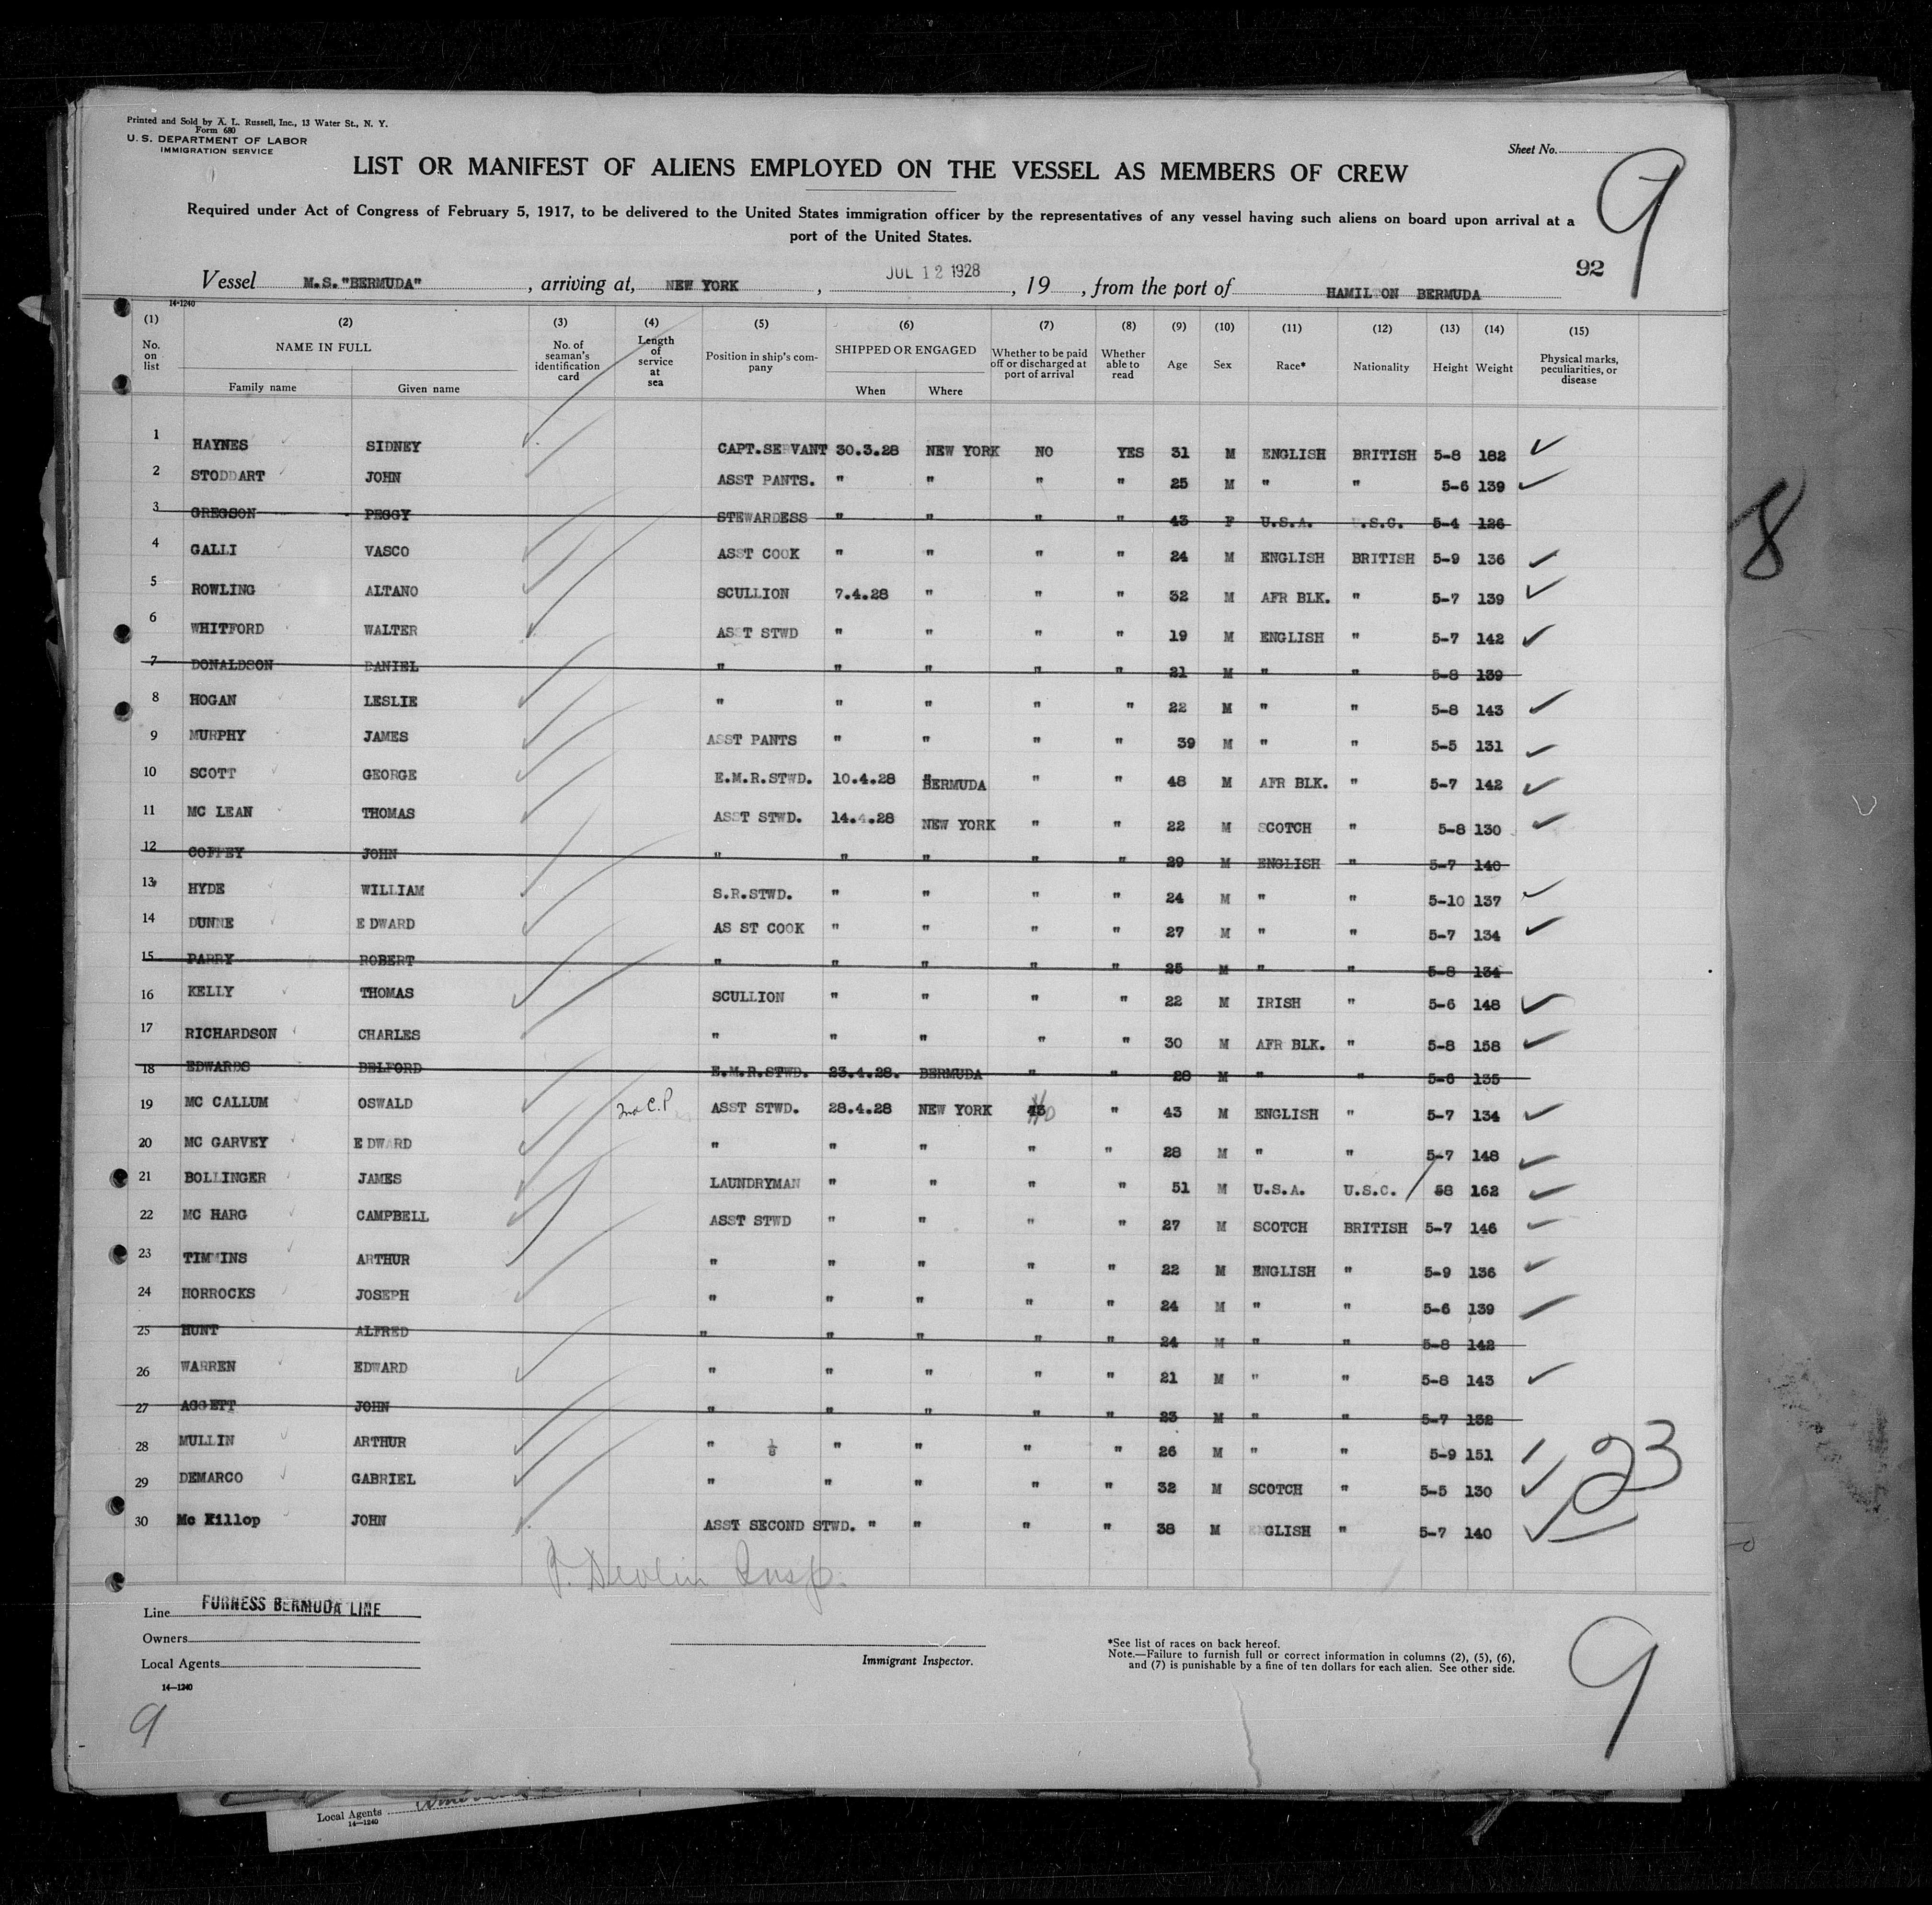 Printed and Sold by A. L. Russell, Inc., 13 Water St., N. Y.
Form 680
U. S. DEPARTMENT OF LABOR
IMMIGRATION SERVICE
Sheet No.
9
LIST OR MANIFEST OF ALIENS EMPLOYED ON THE VESSEL AS MEMBERS OF CREW
Required under Act of Congress of February 5, 1917, to be delivered to the United States immigration officer by the representatives of any vessel having such aliens on board upon arrival at a
port of the United States.
92
Vessel M.S."BERMUDA", arriving at, NEW YORK, JUL 12 1928, 19 , from the port of HAMILTON BERMUDA
14-1240
(1) (2) (3) (4) (5) (6) (7) (8) (9) (10) (11) (12) (13) (14) (15)
No. on list NAME IN FULL Family name Given name No. of seaman's identification card Length of service at sea Position in ship's company SHIPPED OR ENGAGED When Where Whether to be paid off or discharged at port of arrival Whether able to read Age Sex Race* Nationality Height Weight Physical marks, peculiarities, or disease
1 HAYNES SIDNEY CAPT.SERVANT 30.3.28 NEW YORK NO YES 31 M ENGLISH BRITISH 5-8 182
2 STODDART JOHN ASST PANTS. " " " " 25 M " " 5-6 139
3 GREGSON PEGGY STEWARDESS " " " " 43 F U.S.A. U.S.C. 5-4 126
4 GALLI VASCO ASST COOK " " " " 24 M ENGLISH BRITISH 5-9 136
5 ROWLING ALTANO SCULLION 7.4.28 " " " 32 M AFR BLK. " 5-7 139
6 WHITFORD WALTER ASST STWD " " " " 19 M ENGLISH " 5-7 142
7 DONALDSON DANIEL " " " " " 21 M " " 5-8 139
8 HOGAN LESLIE " " " " " 22 M " " 5-8 143
9 MURPHY JAMES ASST PANTS " " " " 39 M " " 5-5 131
10 SCOTT GEORGE E.M.R.STWD. 10.4.28 BERMUDA " " 48 M AFR BLK. " 5-7 142
11 MC LEAN THOMAS ASST STWD. 14.4.28 NEW YORK " " 22 M SCOTCH " 5-8 130
12 COFFEY JOHN " " " " " 29 M ENGLISH " 5-7 140
13 HYDE WILLIAM S.R.STWD. " " " " 24 M " " 5-10 137
14 DUNNE E DWARD AS ST COOK " " " " 27 M " " 5-7 134
15 PARRY ROBERT " " " " " 25 M " " 5-8 134
16 KELLY THOMAS SCULLION " " " " 22 M IRISH " 5-6 148
17 RICHARDSON CHARLES " " " " " 30 M AFR BLK. " 5-8 158
18 EDWARDS BELFORD E.M.R.STWD. 23.4.28. BERMUDA " " 28 M " " 5-6 135
19 MC CALLUM OSWALD 2nd C.P ASST STWD. 28.4.28 NEW YORK No " 43 M ENGLISH " 5-7 134
20 MC GARVEY E DWARD " " " " " 28 M " " 5-7 148
21 BOLLINGER JAMES LAUNDRYMAN " " " " 51 M U.S.A. U.S.C. 58 162
22 MC HARG CAMPBELL ASST STWD " " " " 27 M SCOTCH BRITISH 5-7 146
23 TIMMINS ARTHUR " " " " " 22 M ENGLISH " 5-9 136
24 HORROCKS JOSEPH " " " " " 24 M " " 5-6 139
25 HUNT ALFRED " " " " " 24 M " " 5-8 142
26 WARREN EDWARD " " " " " 21 M " " 5-8 143
27 AGGETT JOHN " " " " " 23 M " " 5-7 132
28 MULLIN ARTHUR " " " " " 26 M " " 5-9 151
29 DEMARCO GABRIEL " " " " " 32 M SCOTCH " 5-5 130
30 Mc Killop JOHN ASST SECOND STWD. " " " " 38 M ENGLISH " 5-7 140
23
8
J. Devlin Insp.
Line FURNESS BERMUDA LINE
Owners
Local Agents
14—1240
Immigrant Inspector.
*See list of races on back hereof.
Note.—Failure to furnish full or correct information in columns (2), (5), (6),
and (7) is punishable by a fine of ten dollars for each alien. See other side.
9
9
Local Agents
14—1240